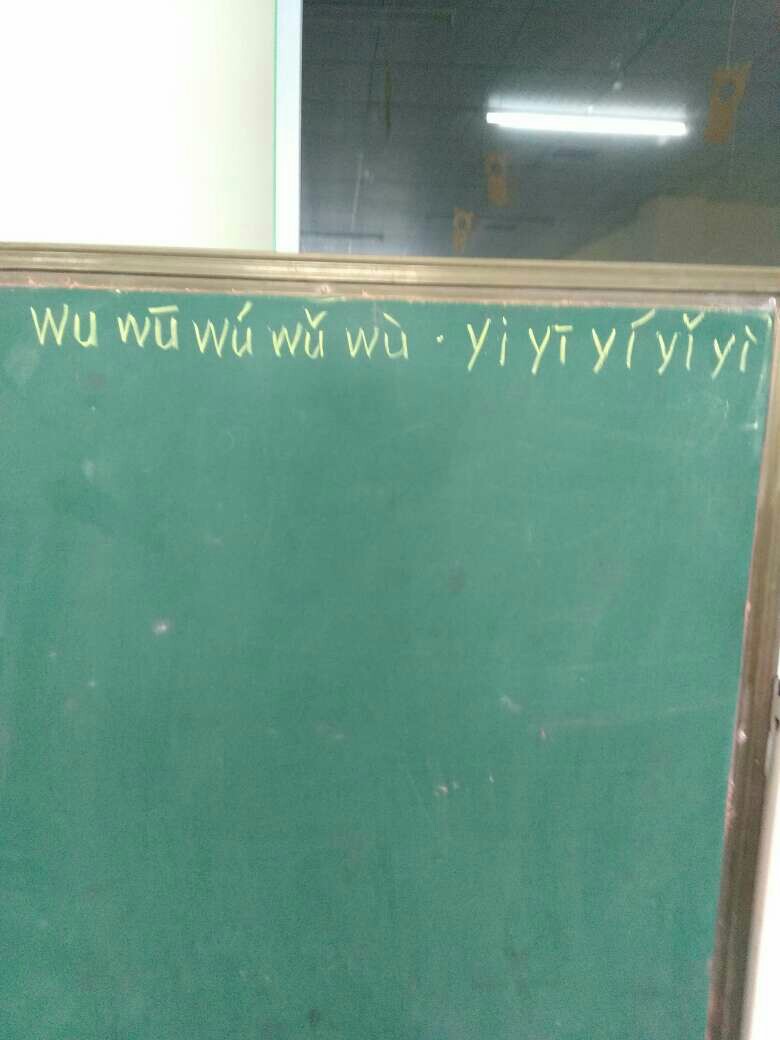 wu wū wú wǔ wù · yi yī yí yǐ yì